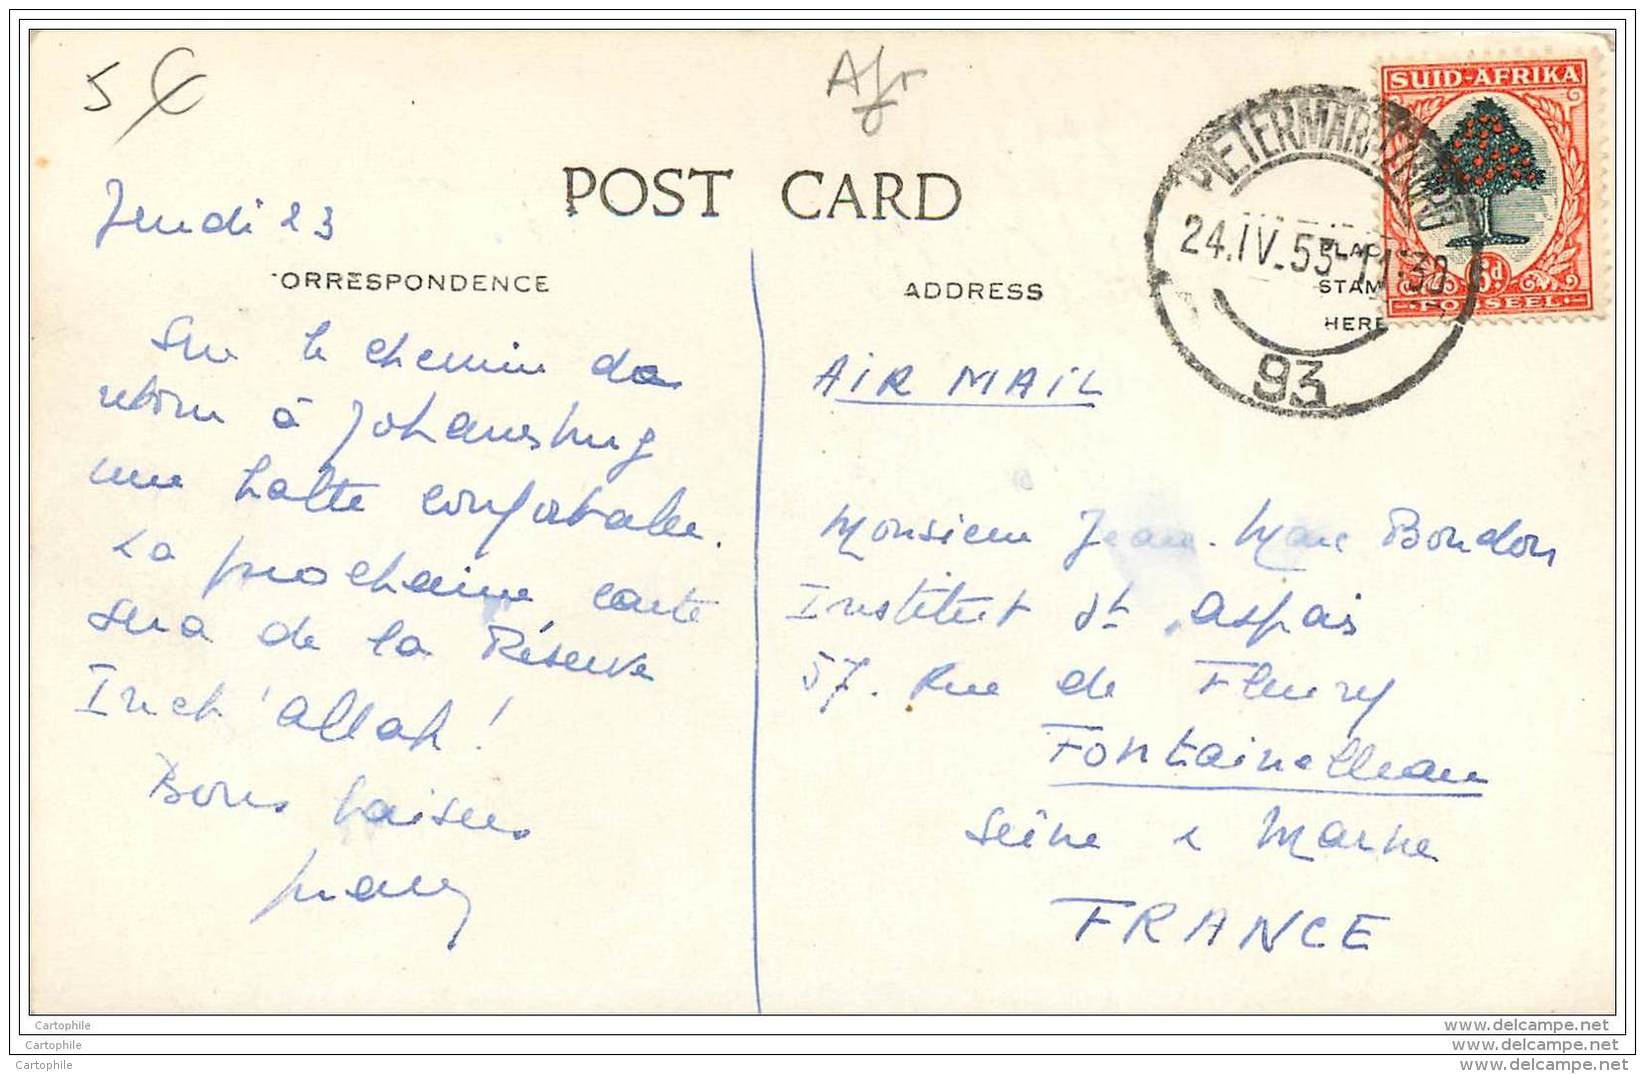 5 €
Afr
POST CARD
SUID-AFRIKA
6d
POSSEEL
PIETERMARITZBURG
24.IV.53-11:30
93
PLAC
STAM
HERE
Jeudi 23
CORRESPONDENCE
Sur le chemin de
retour à Johannesburg
une halte confortable.
La prochaine carte
sera de la Réserve
Inch'allah!
Bons baisers
ADDRESS
AIR MAIL
Monsieur Jean-Marc Bourdon
Institut St Aspais
57. Rue de Fleury
Fontainebleau
Seine & Marne
FRANCE
Cartophile
Cartophile
Cartophile
www.delcampe.net
www.delcampe.net
www.delcampe.net